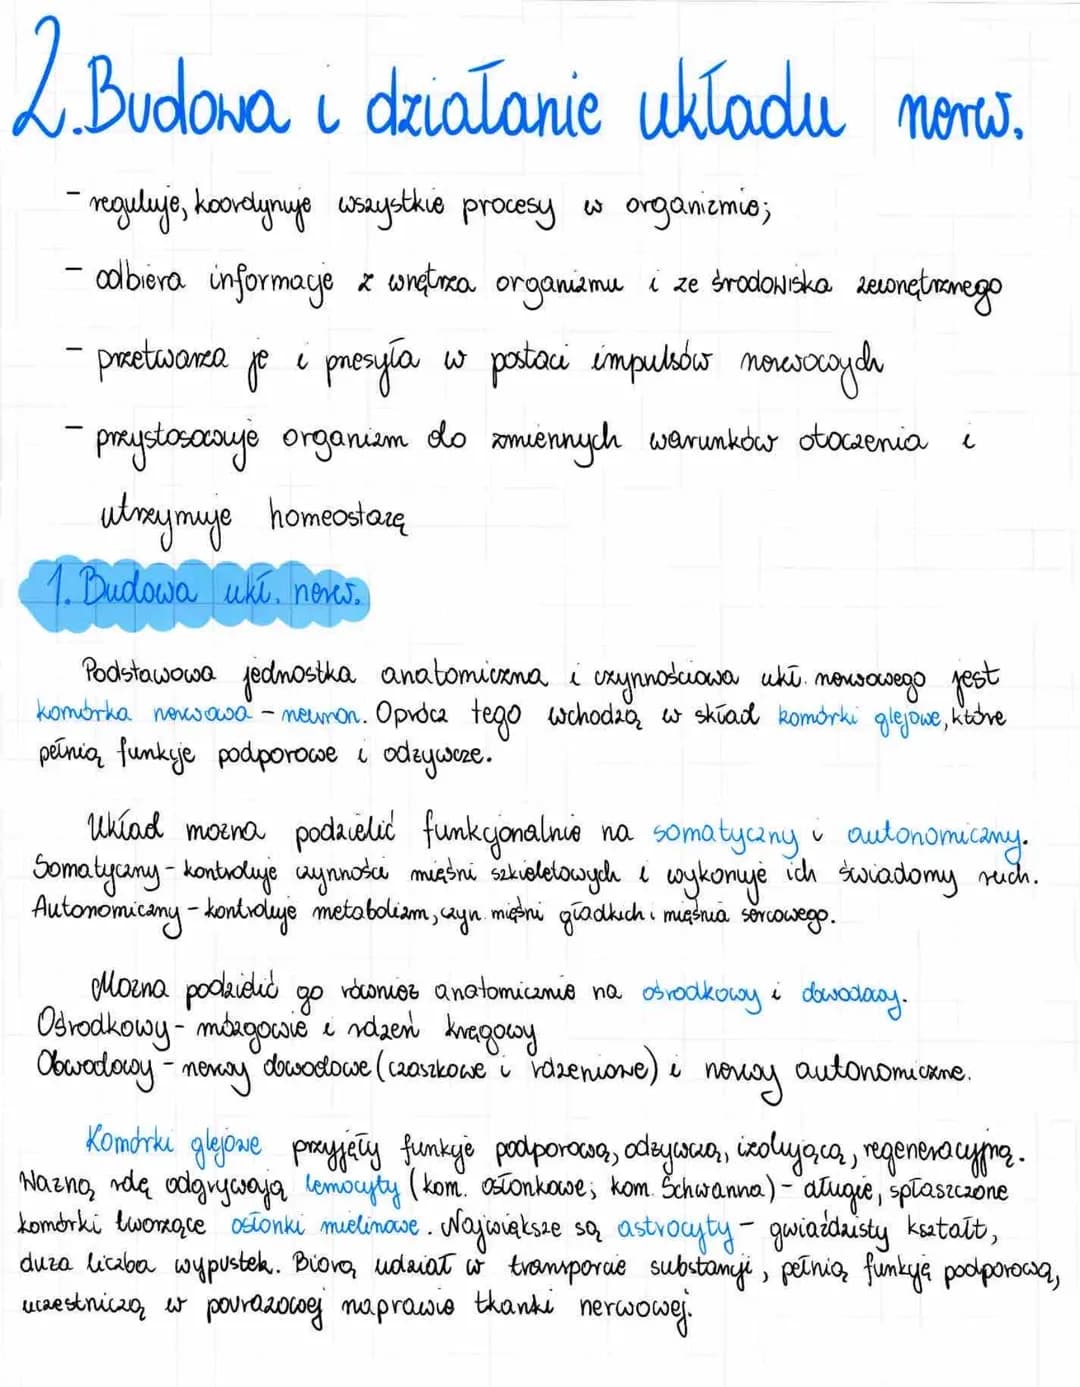 2. Budowa i działanie układu nerw.
- reguluje, koordynuje wszystkie procesy w organizmie;
- odbiera informacje z wnętrza organizmu i ze środowiska zewnętrznego
- przetwarza je i przesyła w postaci impulsów nerwowych
- przystosowuje organizm do zmiennych warunków otoczenia i
utrzymuje homeostazę
1. Budowa ukł. nerw.
Podstawowa jednostka anatomiczna i czynnościowa ukł. nerwowego jest
komórka nerwowa - neuron. Oprócz tego wchodzą w skład komórki glejowe, które
pełnią funkcje podporowe i odżywcze.
Układ można podzielić funkcjonalnie na somatyczny i autonomiczny.
Somatyczny - kontroluje czynności mięśni szkieletowych i wykonuje ich świadomy ruch.
Autonomiczny - kontroluje metabolizm, czyn. mięśni gładkich i mięśnia sercowego.
Można podzielić go również anatomicznie na ośrodkowy i obwodowy.
Ośrodkowy - mózgowie i rdzeń kręgowy
Obwodowy - nerwy obwodowe (czaszkowe i rdzeniowe) i nerwy autonomiczne.
Komórki glejowe przyjęły funkcje podporową, odżywczą, izolującą, regeneracyjną.
Ważną rolę odgrywają lemocyty (kom. osłonkowe; kom. Schwanna) - długie, spłaszczone
komórki tworzące osłonki mielinowe. Największe są astrocyty - gwiaździsty kształt,
duża liczba wypustek. Biorą udział w transporcie substancji, pełnią funkcją podporową,
uczestniczą w pourazowej naprawie tkanki nerwowej.